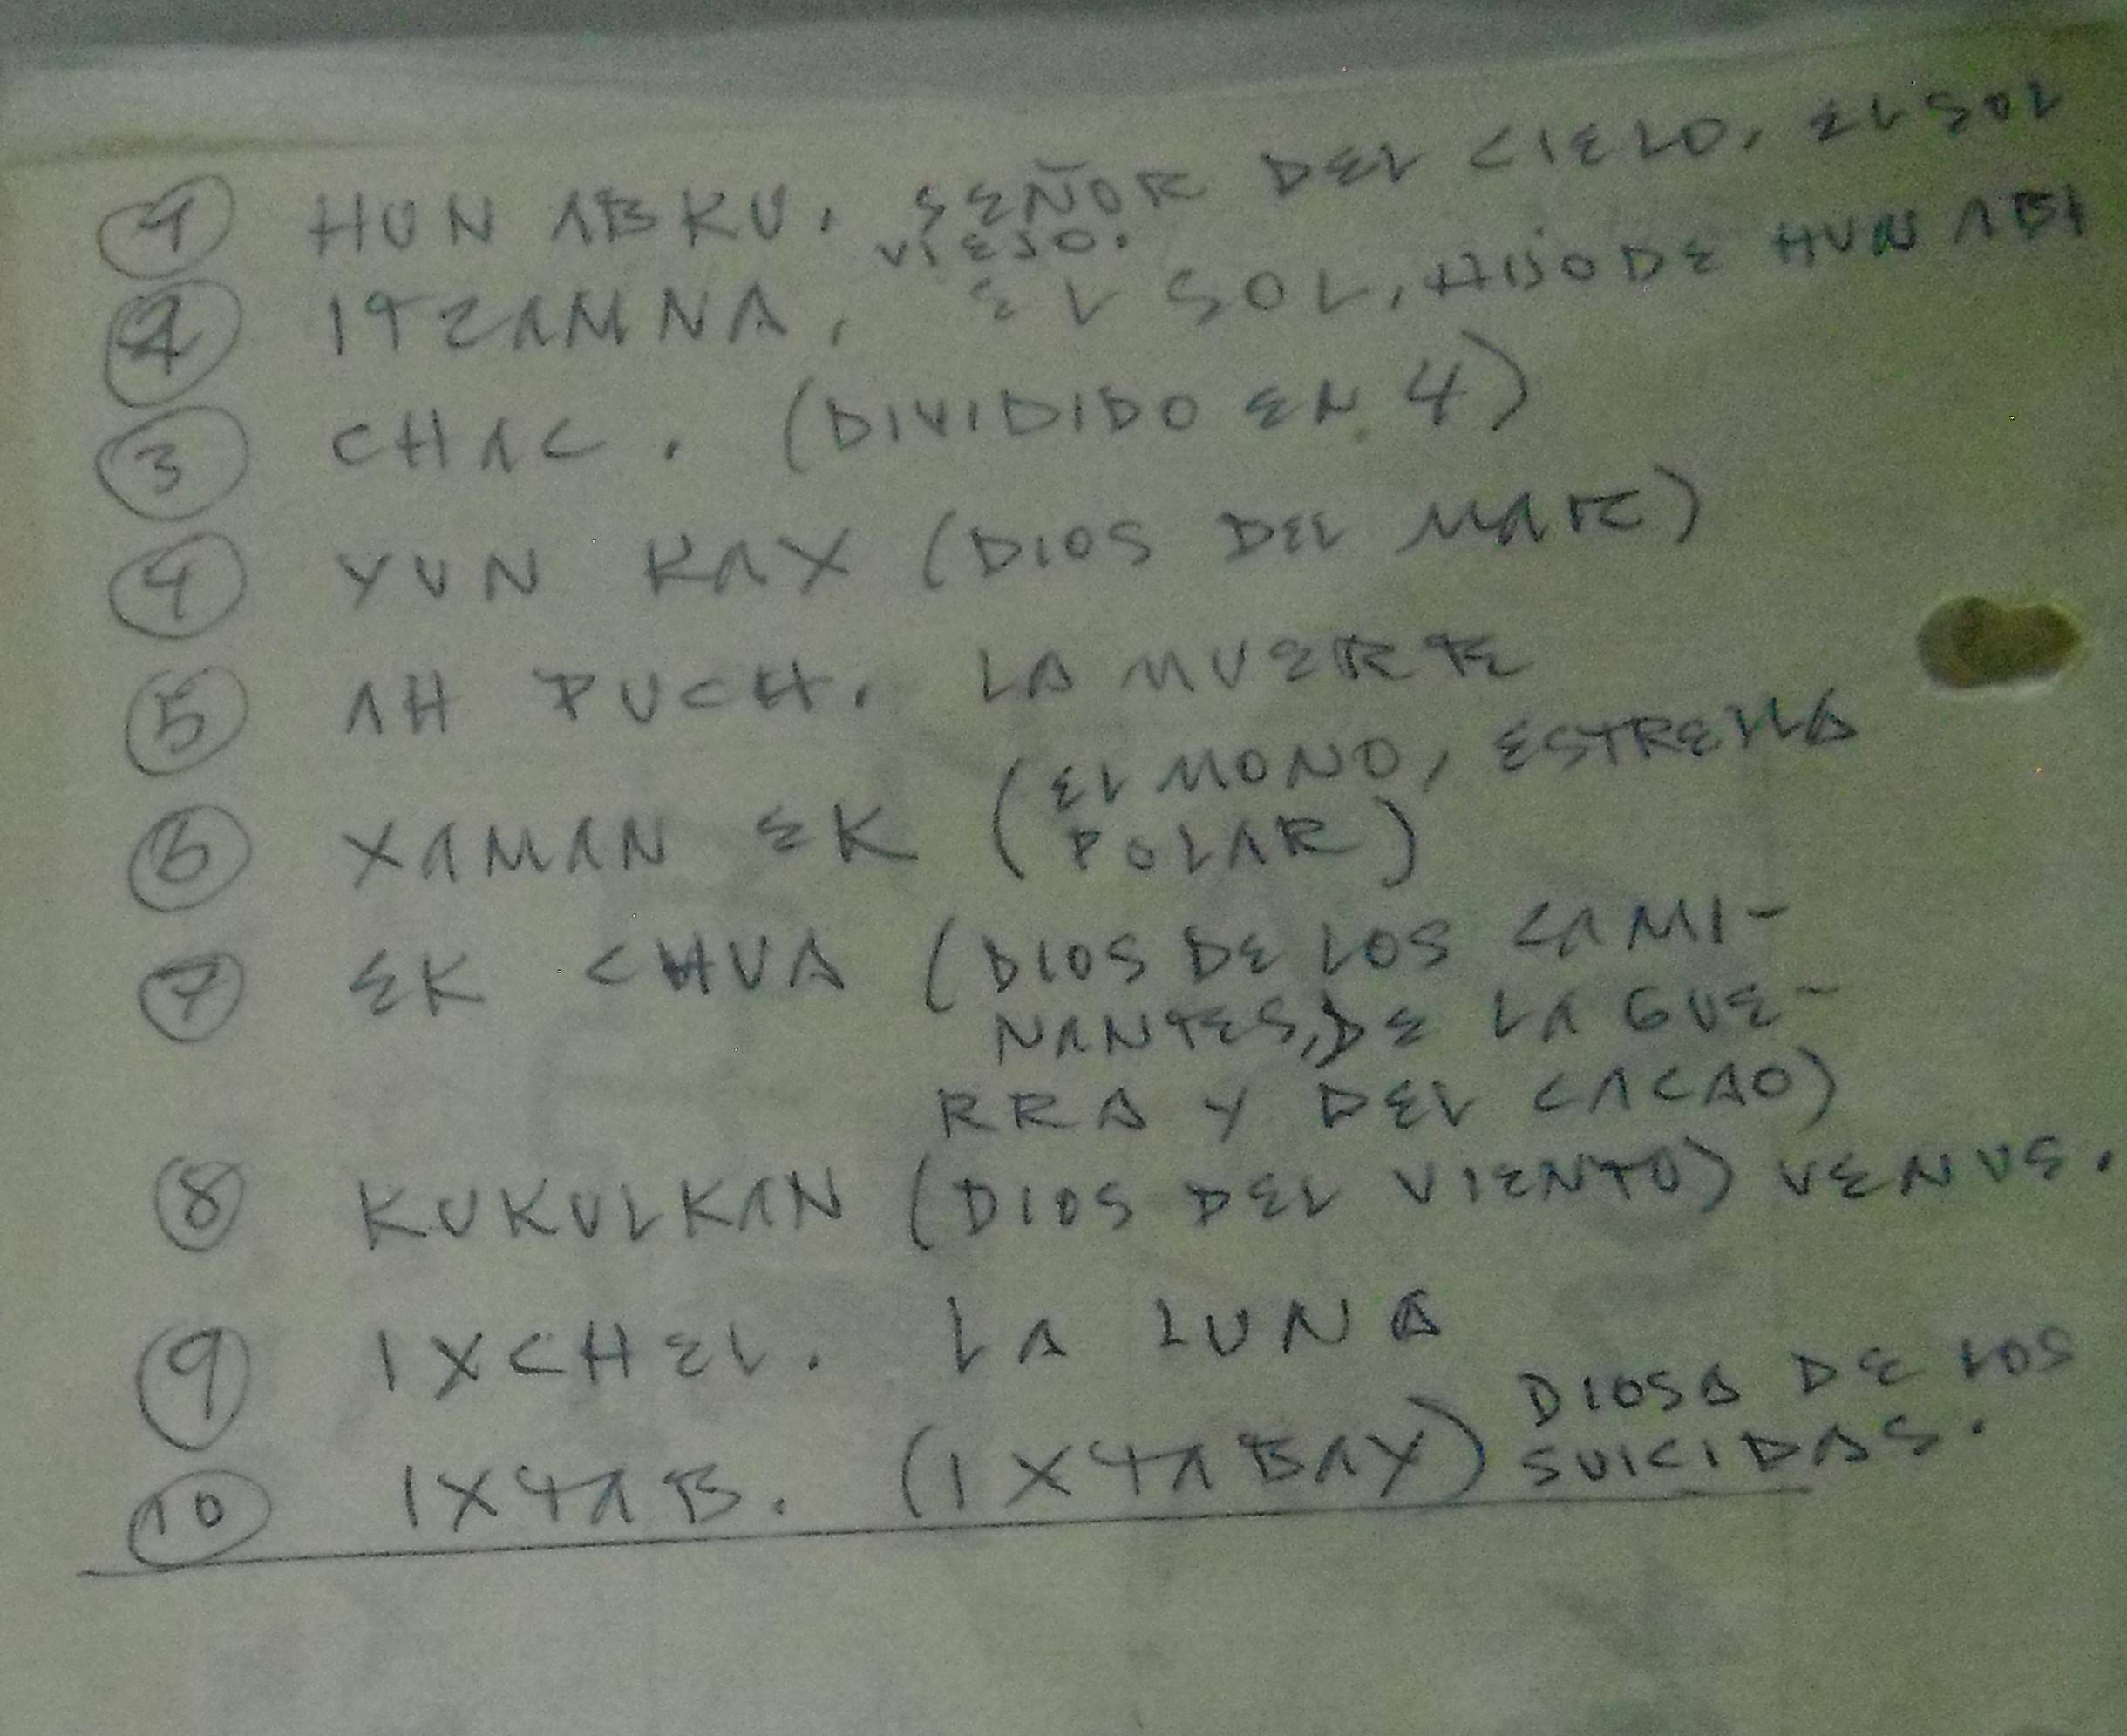 1 HUN ABKU. SEÑOR DEL CIELO, EL SOL
VIEJO.
2 ITZAMNA, EL SOL, HIJO DE HUN AB
3 CHAC. (DIVIDIDO EN 4)
4 YUN KAX (DIOS DEL MAIZ)
5 AH PUCH. LA MUERTE
6 XAMAN EK (EL MONO, ESTRELLA
POLAR)
7 EK CHUA (DIOS DE LOS CAMI-
NANTES, DE LA GUE-
RRA Y DEL CACAO)
8 KUKULKAN (DIOS DEL VIENTO) VENUS.
9 IXCHEL. LA LUNA
10 IXTAB. (IXTABAY) DIOSA DE LOS
SUICIDAS.